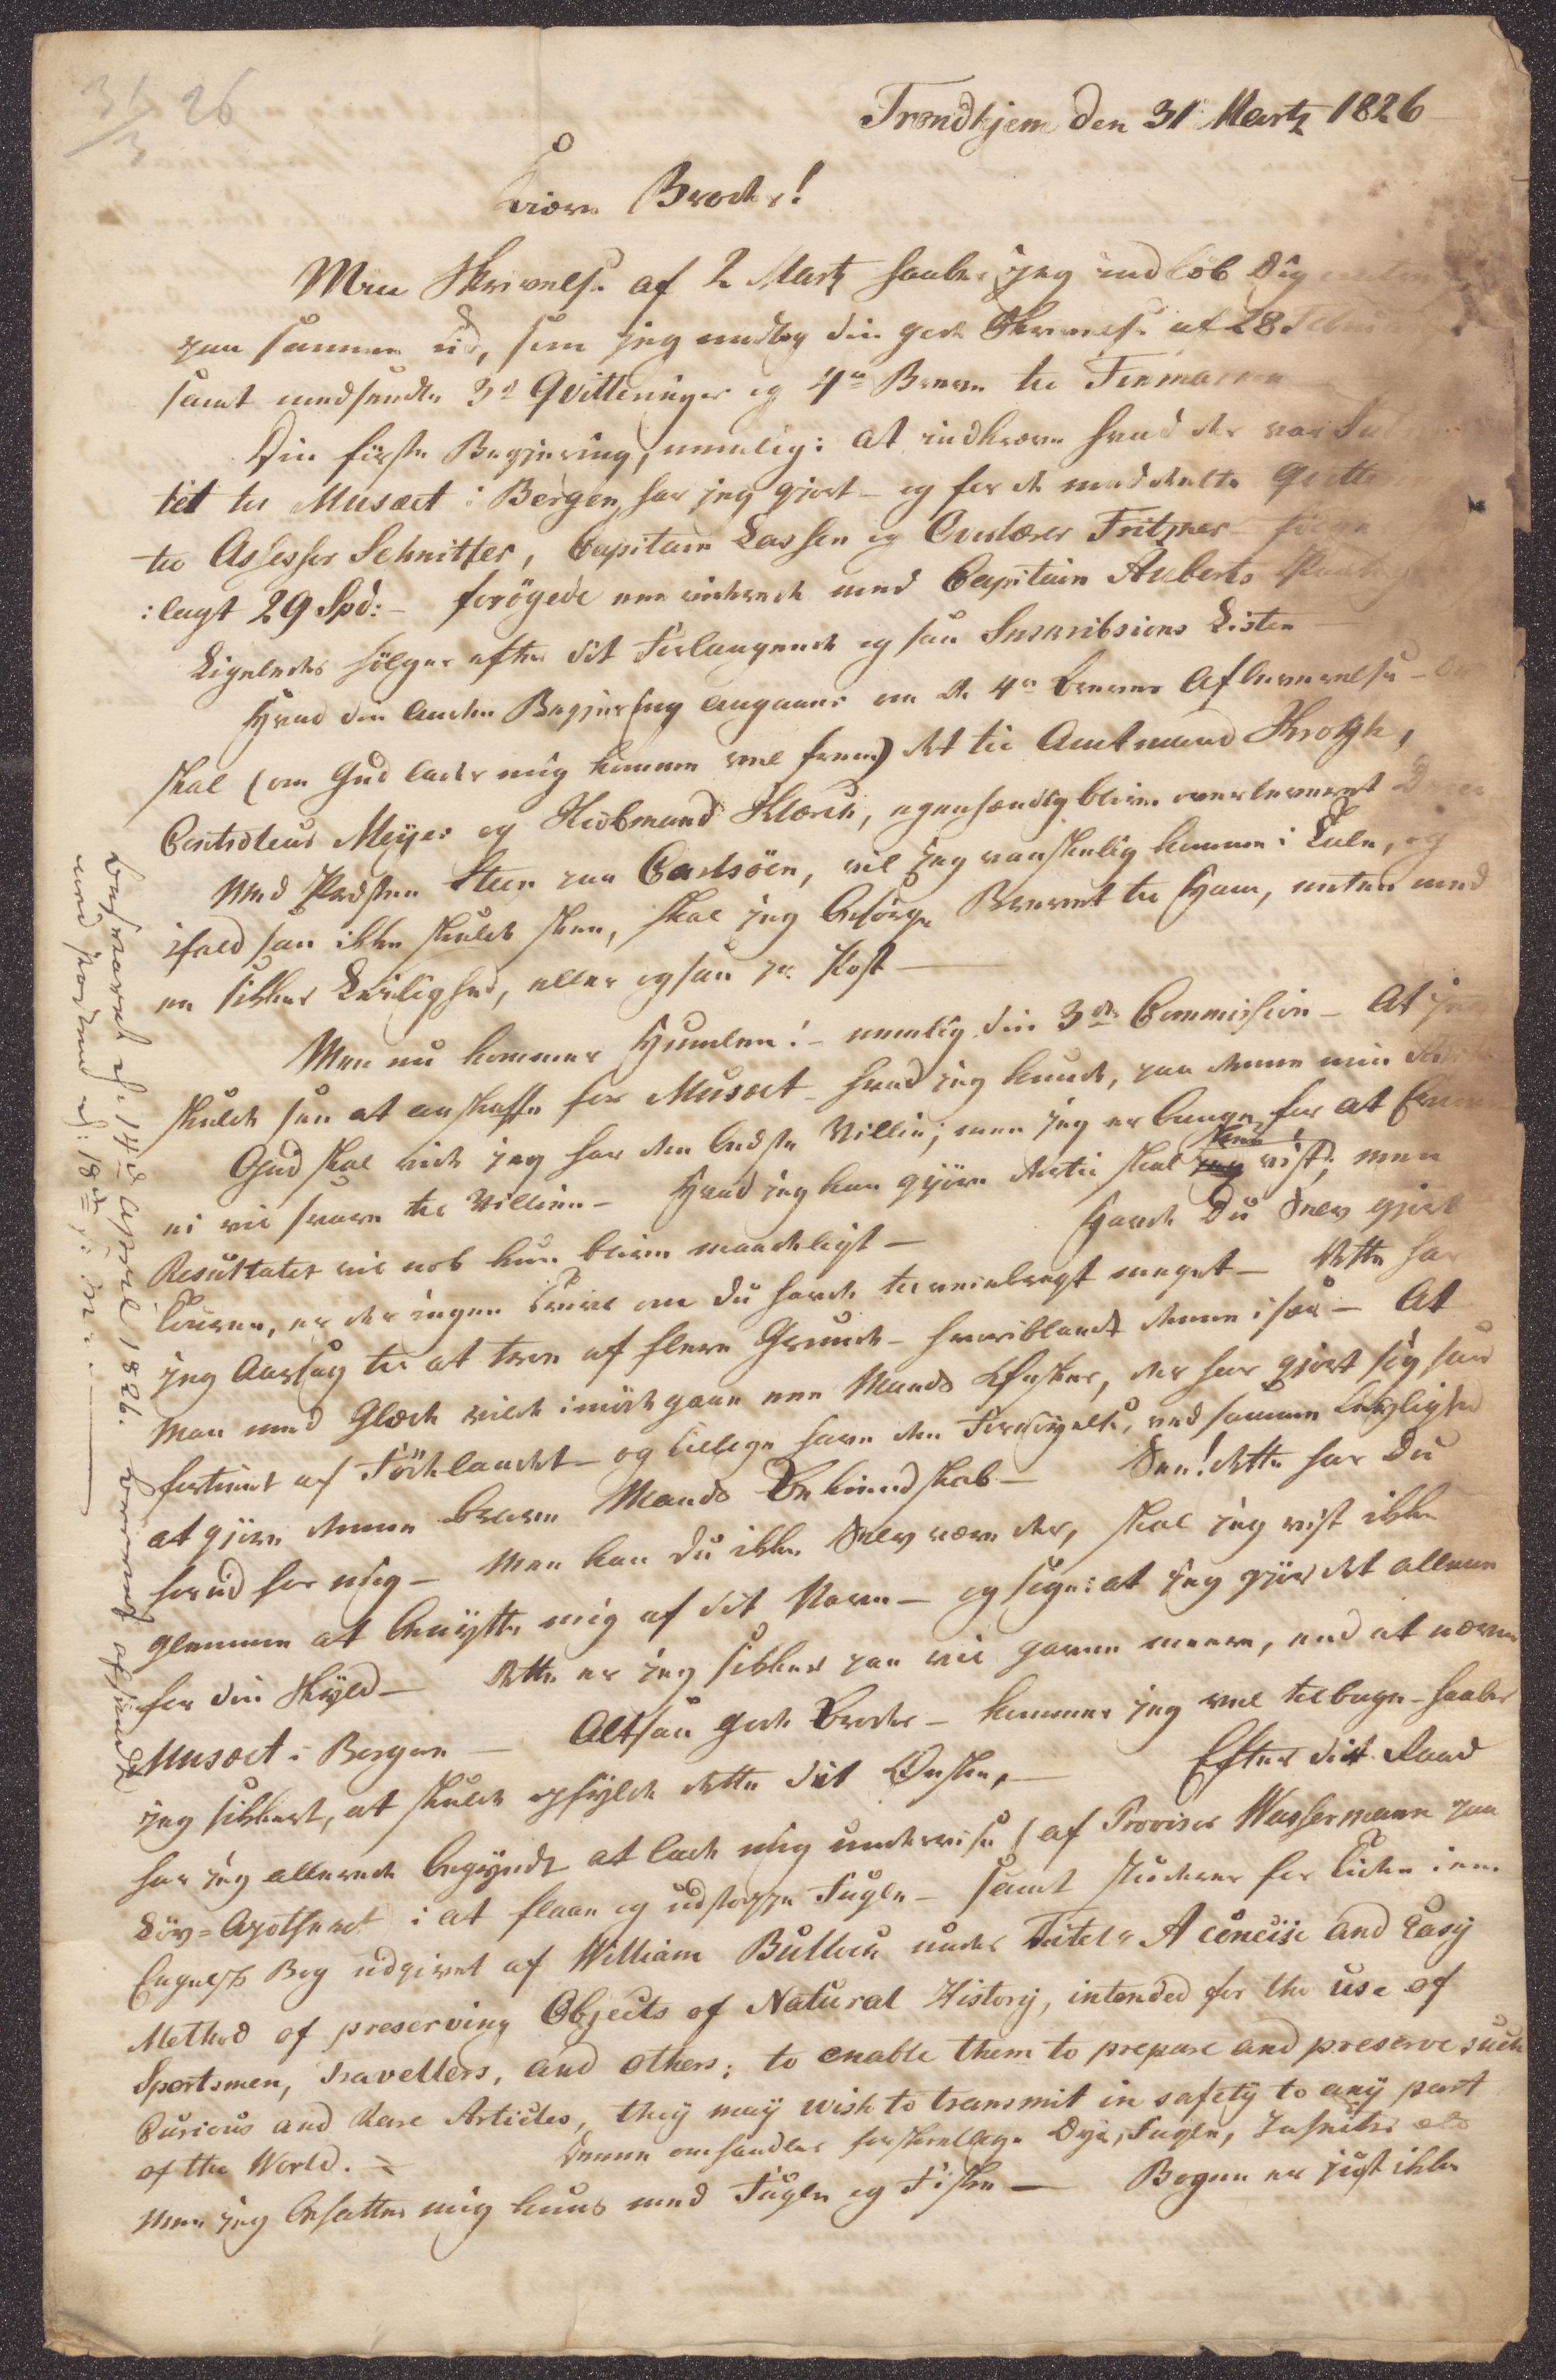 31/3 26
Trondhjem den 31 Martz 1826
Kiære Broder!
Min Skrivelse af 2 Martz haaber jeg indløb Dig
paa samme tid, som jeg modtog din gode Skrivelse af 28 Febru
samt medsendte 3de Qvitteringer og 4re Breve til Finmarken
Din første Begjering, nemlig: at indkræve hvad der var
tet til Musæet i Bergen, har jeg gjort – og for de meddeelte Qvitte
til Assessor Schnitler, Capitain Lassen og Overlærer Fritzner følger
:lagt 29 Spd:– forøgede een allerede med Capitain Auberts
Ligeledes følger efter dit Forlangende og saa Suscribsions Listen
Hvad din anden Begjering angaaer om de 4re Breves Afleverelse –
skal (om Gud lader mig komme vel frem) det til Amtmand Krogh,
Controleur Meyer og Kiøbmand Klærck, egenhændig blive overleveret
Med Præsten Steen paa Carlsöen, vil jeg vanskelig komme i Tale, og
ifald saa ikke skulde skee, skal jeg besørge Brevet til Ham, enten med
en sikker Leilighed, eller ogsaa pr Post –
Men nu kommer Humlen! – nemlig din 3die Commission – At jeg
skulde see at anskaffe for Musæet hvad jeg kunde, paa denne min Reise
Gud skal vide jeg har den bedste Villie; men jeg er bange for at Evnen
ei vil svare til Villien – Hvad jeg kan gjøre dertil skal skee vist; men
Resultatet vil nok kun blive maadeligt – Havde Du Selv gjort
Touren, er der ingen Tvivl om du havde tilveiebragt meget – Dette har
jeg Aarsag til at troe af flere Grunde – hvoriblandt denne især – At
man med Glæde vilde imødegaae een Mands Ønsker, der har gjort sig saa
fortient af Födelandet – og tillige have den Fornøyelse, ved samme Leylighed
at gjøre denne brave Mands Bekiendtskab – See! dette har Du
forud for mig – Men kan Du ikke Selv være der, skal jeg vist ikke
glemme at benytte mig af dit Navn – og sige: at jeg gjør det allene
for din Skyld – Dette er jeg sikker paa vil gavne meere, end at nævne
Musæet i Bergen – Altsaa gode Broder – kommer jeg vel tilbage – haaber
jeg sikkert, at skulde opfylde dette dit Ønske, – Efter dit Raad
har jeg allerede begyndt at lade mig underviise (af Provisor Wassermann paa
Löv-Apotheket) i at flaae og udstoppe Fugle – samt studerer for Tiden i en
Engelsk Bog udgivet af William Bullock under Titel: A concise and Easy
Method of preserving Objects of Natural History, intended for the use of
Sportsmen, Travellers, and others; to enable them to prepare and preserve such
Curious and Rare Articles, they may wish to transmit in safety to any part
of the World. = Denne omhandler forskiellige Dyr, Fugle, Insecter etc
men jeg befatter mig kuns med Fugle og Fiske – Bogen er just ikke
besvaret d. 14de April 1826. Brevet afsendt
med Posten d: 18de